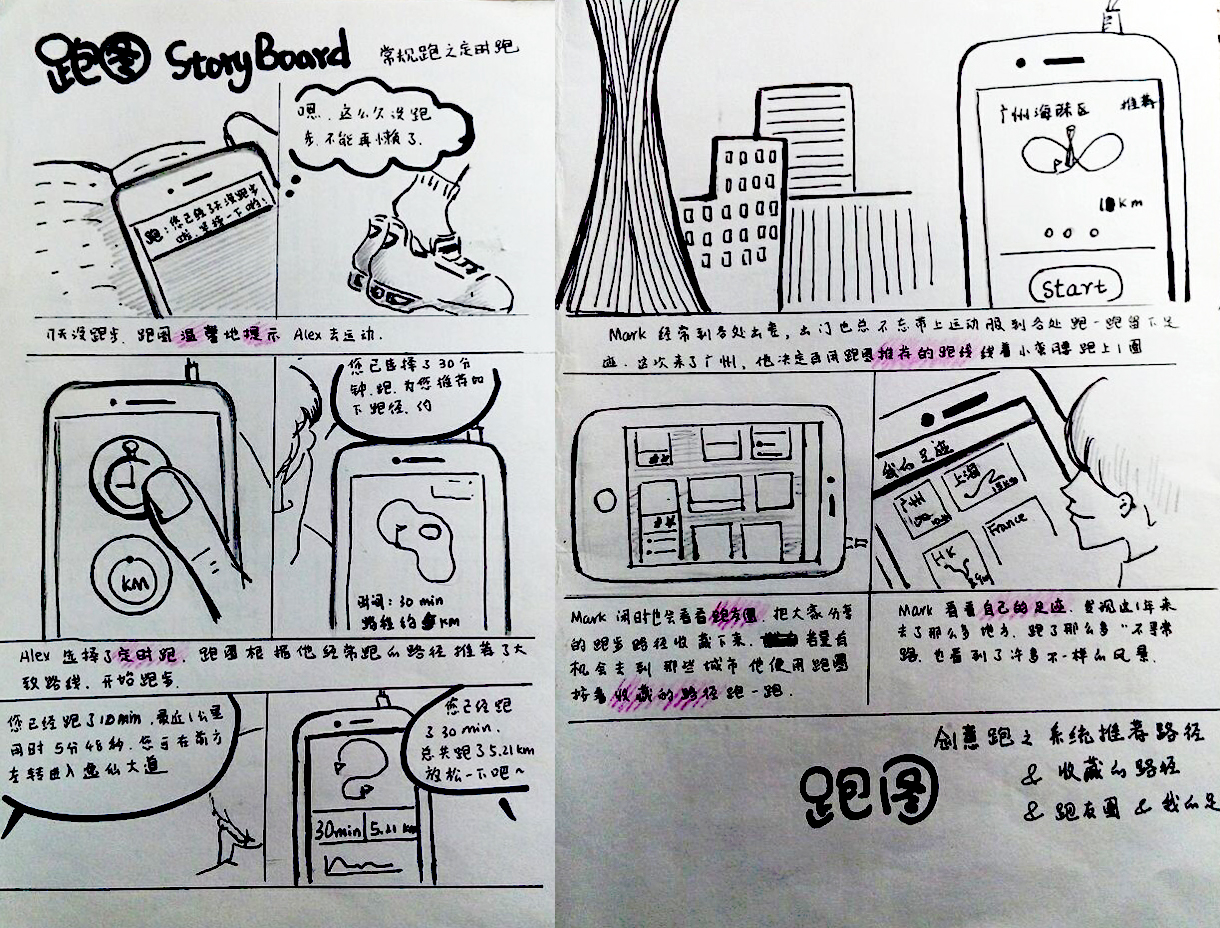 跑图 StoryBoard 常规跑之定时跑
嗯，这么久没跑
步，不能再懒了。
跑：您已经7天没跑步
啦，坚持一下哟！
7天没跑步，跑图温馨地提示 Alex 去运动。
KM
您已选择了30分
钟.跑.为您推荐如
下跑径，约
时间：30 min
路程约 KM
Alex 选择了定时跑，跑图根据他经常跑的路径推荐了大
致路线，开始跑步.
您已经跑了10min，最近1公里
用时 5分48秒，您可在前方
左转进入逸仙大道
您已经跑
了30 min.
总共跑了5.21km
放松一下吧~
30min 5.21 km
广州海珠区 推荐
10Km
Start
Mark 经常到各处出差，出门也总不忘带上运动服到各处跑一跑留下足
迹，这次来了广州，他决定再用跑图推荐的跑线绕着小蛮腰跑上1圈
我的足迹
广州
10km
上海
18Km
HK
France
Mark 闲时也会看看跑友圈，把大家分享
的跑步路径收藏下来，若有
机会去到那些城市他便用跑图
按着收藏的路径跑一跑.
Mark 看看自己的足迹，发现这1年来
去了那么多地方，跑了那么多“不寻常
路，也看到了许多不一样的风景.
创意跑之系统推荐路径
& 收藏的路径
& 跑友圈 & 我的足
跑图